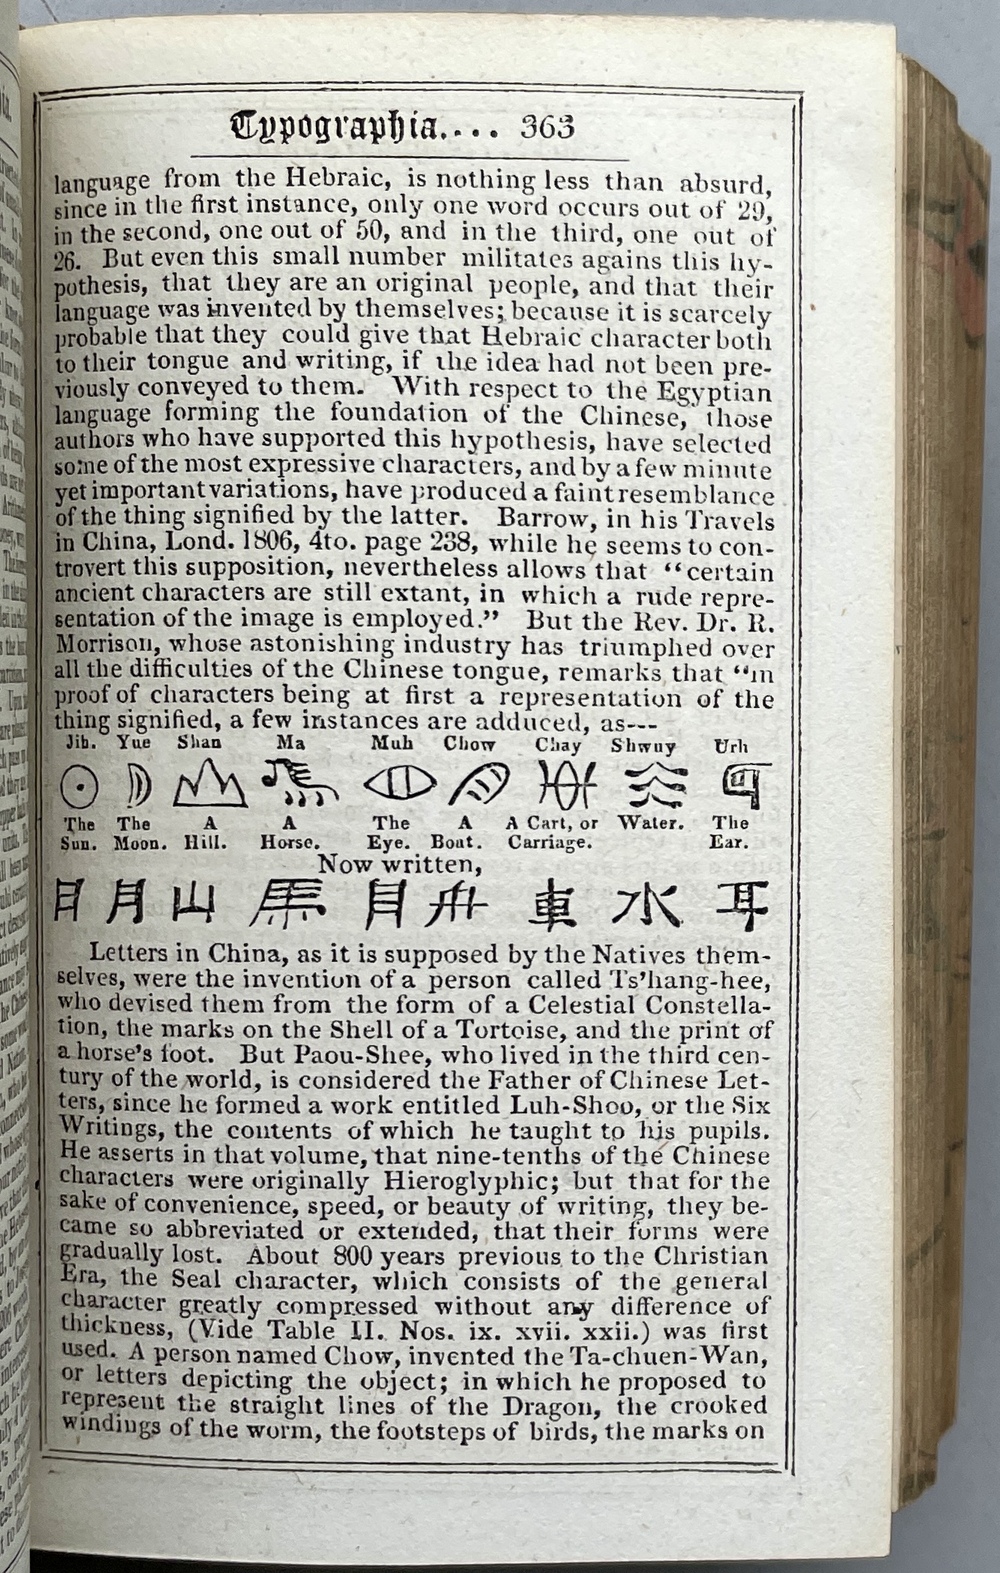 Typographia.... 363
language from the Hebraic, is nothing less than absurd,
since in the first instance, only one word occurs out of 29,
in the second, one out of 50, and in the third, one out of
26. But even this small number militates agains this hy-
pothesis, that they are an original people, and that their
language was invented by themselves; because it is scarcely
probable that they could give that Hebraic character both
to their tongue and writing, if the idea had not been pre-
viously conveyed to them. With respect to the Egyptian
language forming the foundation of the Chinese, those
authors who have supported this hypothesis, have selected
some of the most expressive characters, and by a few minute
yet important variations, have produced a faint resemblance
of the thing signified by the latter. Barrow, in his Travels
in China, Lond. 1806, 4to. page 238, while he seems to con-
trovert this supposition, nevertheless allows that “certain
ancient characters are still extant, in which a rude repre-
sentation of the image is employed.” But the Rev. Dr. R.
Morrison, whose astonishing industry has triumphed over
all the difficulties of the Chinese tongue, remarks that “in
proof of characters being at first a representation of the
thing signified, a few instances are adduced, as---
Jih. Yue Shan Ma Muh Chow Chay Shwuy Urh
The The A A The A A Cart, or Water. The
Sun. Moon. Hill. Horse. Eye. Boat. Carriage. Ear.
Now written,
日 月 山 馬 目 舟 車 水 耳
Letters in China, as it is supposed by the Natives them-
selves, were the invention of a person called Ts’hang-hee,
who devised them from the form of a Celestial Constella-
tion, the marks on the Shell of a Tortoise, and the print of
a horse’s foot. But Paou-Shee, who lived in the third cen-
tury of the world, is considered the Father of Chinese Let-
ters, since he formed a work entitled Luh-Shoo, or the Six
Writings, the contents of which he taught to his pupils.
He asserts in that volume, that nine-tenths of the Chinese
characters were originally Hieroglyphic; but that for the
sake of convenience, speed, or beauty of writing, they be-
came so abbreviated or extended, that their forms were
gradually lost. About 800 years previous to the Christian
Era, the Seal character, which consists of the general
character greatly compressed without any difference of
thickness, (Vide Table II. Nos. ix. xvii. xxii.) was first
used. A person named Chow, invented the Ta-chuen-Wan,
or letters depicting the object; in which he proposed to
represent the straight lines of the Dragon, the crooked
windings of the worm, the footsteps of birds, the marks on